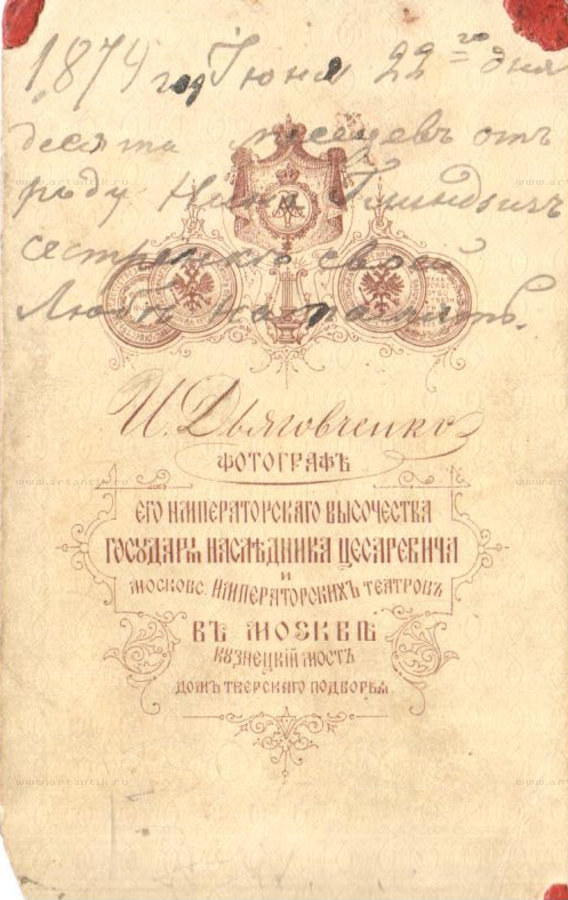 1874 год Іюня 22го дня
десять месецевъ отъ
роду Нина
сестрѣ своей
Любѣ на память.
И. Дьяговченко
ФОТОГРАФЪ
ЕГО ИМПЕРАТОРСКАГО ВЫСОЧЕСТВА
ГОСУДАРЯ НАСЛѢДНИКА ЦЕСАРЕВИЧА
И
МОСКОВС. ИМПЕРАТОРСКИХЪ ТЕАТРОВЪ
ВЪ МОСКВѢ
КУЗНЕЦКІЙ МОСТЪ
ДОМЪ ТВЕРСКАГО ПОДВОРЬЯ
www.artantik.ru